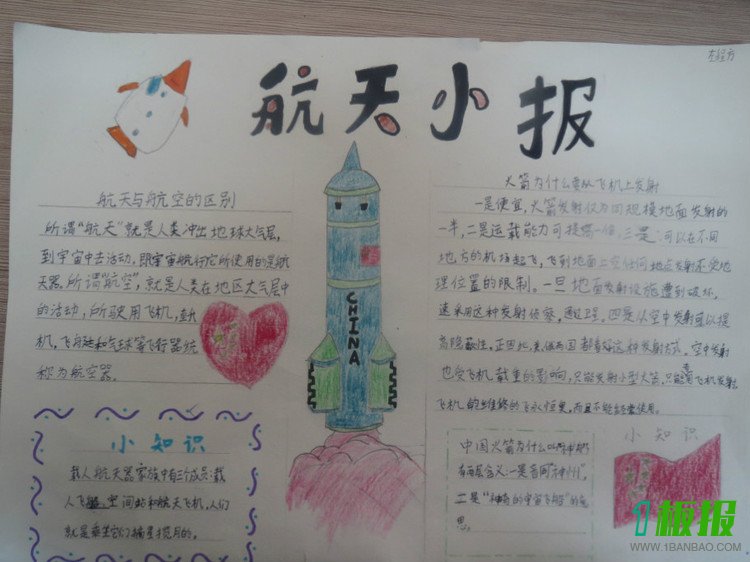 航天小报
航天与航空的区别
所谓“航天”就是人类冲出地球大气层,
到宇宙中去活动,既宇宙航行它所使用的是航
天器,所谓“航空”,就是人类在地区大气层中
的活动,所驶用飞机,直升
机,飞艇和气球等飞行器统
称为航空器。
小知识
载人航天器家族中有三个成员:载
人飞船,空间站和航天飞机,人们
就是乘坐它们摘星揽月的。
CHINA
火箭为什么要从飞机上发射
一是便宜,火箭发射仅为同规模地面发射的
一半,二是运载能力可提高一倍,三是:可以在不同
地方的机场起飞,飞到地面上空任何地点发射不受地
理位置的限制。一旦地面发射设施遭到破坏,
速采用这种发射侦察,通信卫星。四是从空中发射可以提
高隐蔽性,正因此,美俄两国都喜好这种发射方式。空中发射
也受飞机载重的影响,只能发射小型火箭,只能用飞机发射,
飞机的维修的飞,而且不能经常使用。
小知识
中国火箭为什么叫神舟
有两层含义:一是音同“神州”,
二是“神奇的宇宙飞船”的意
思。
1板报
WWW.1BANBAO.COM